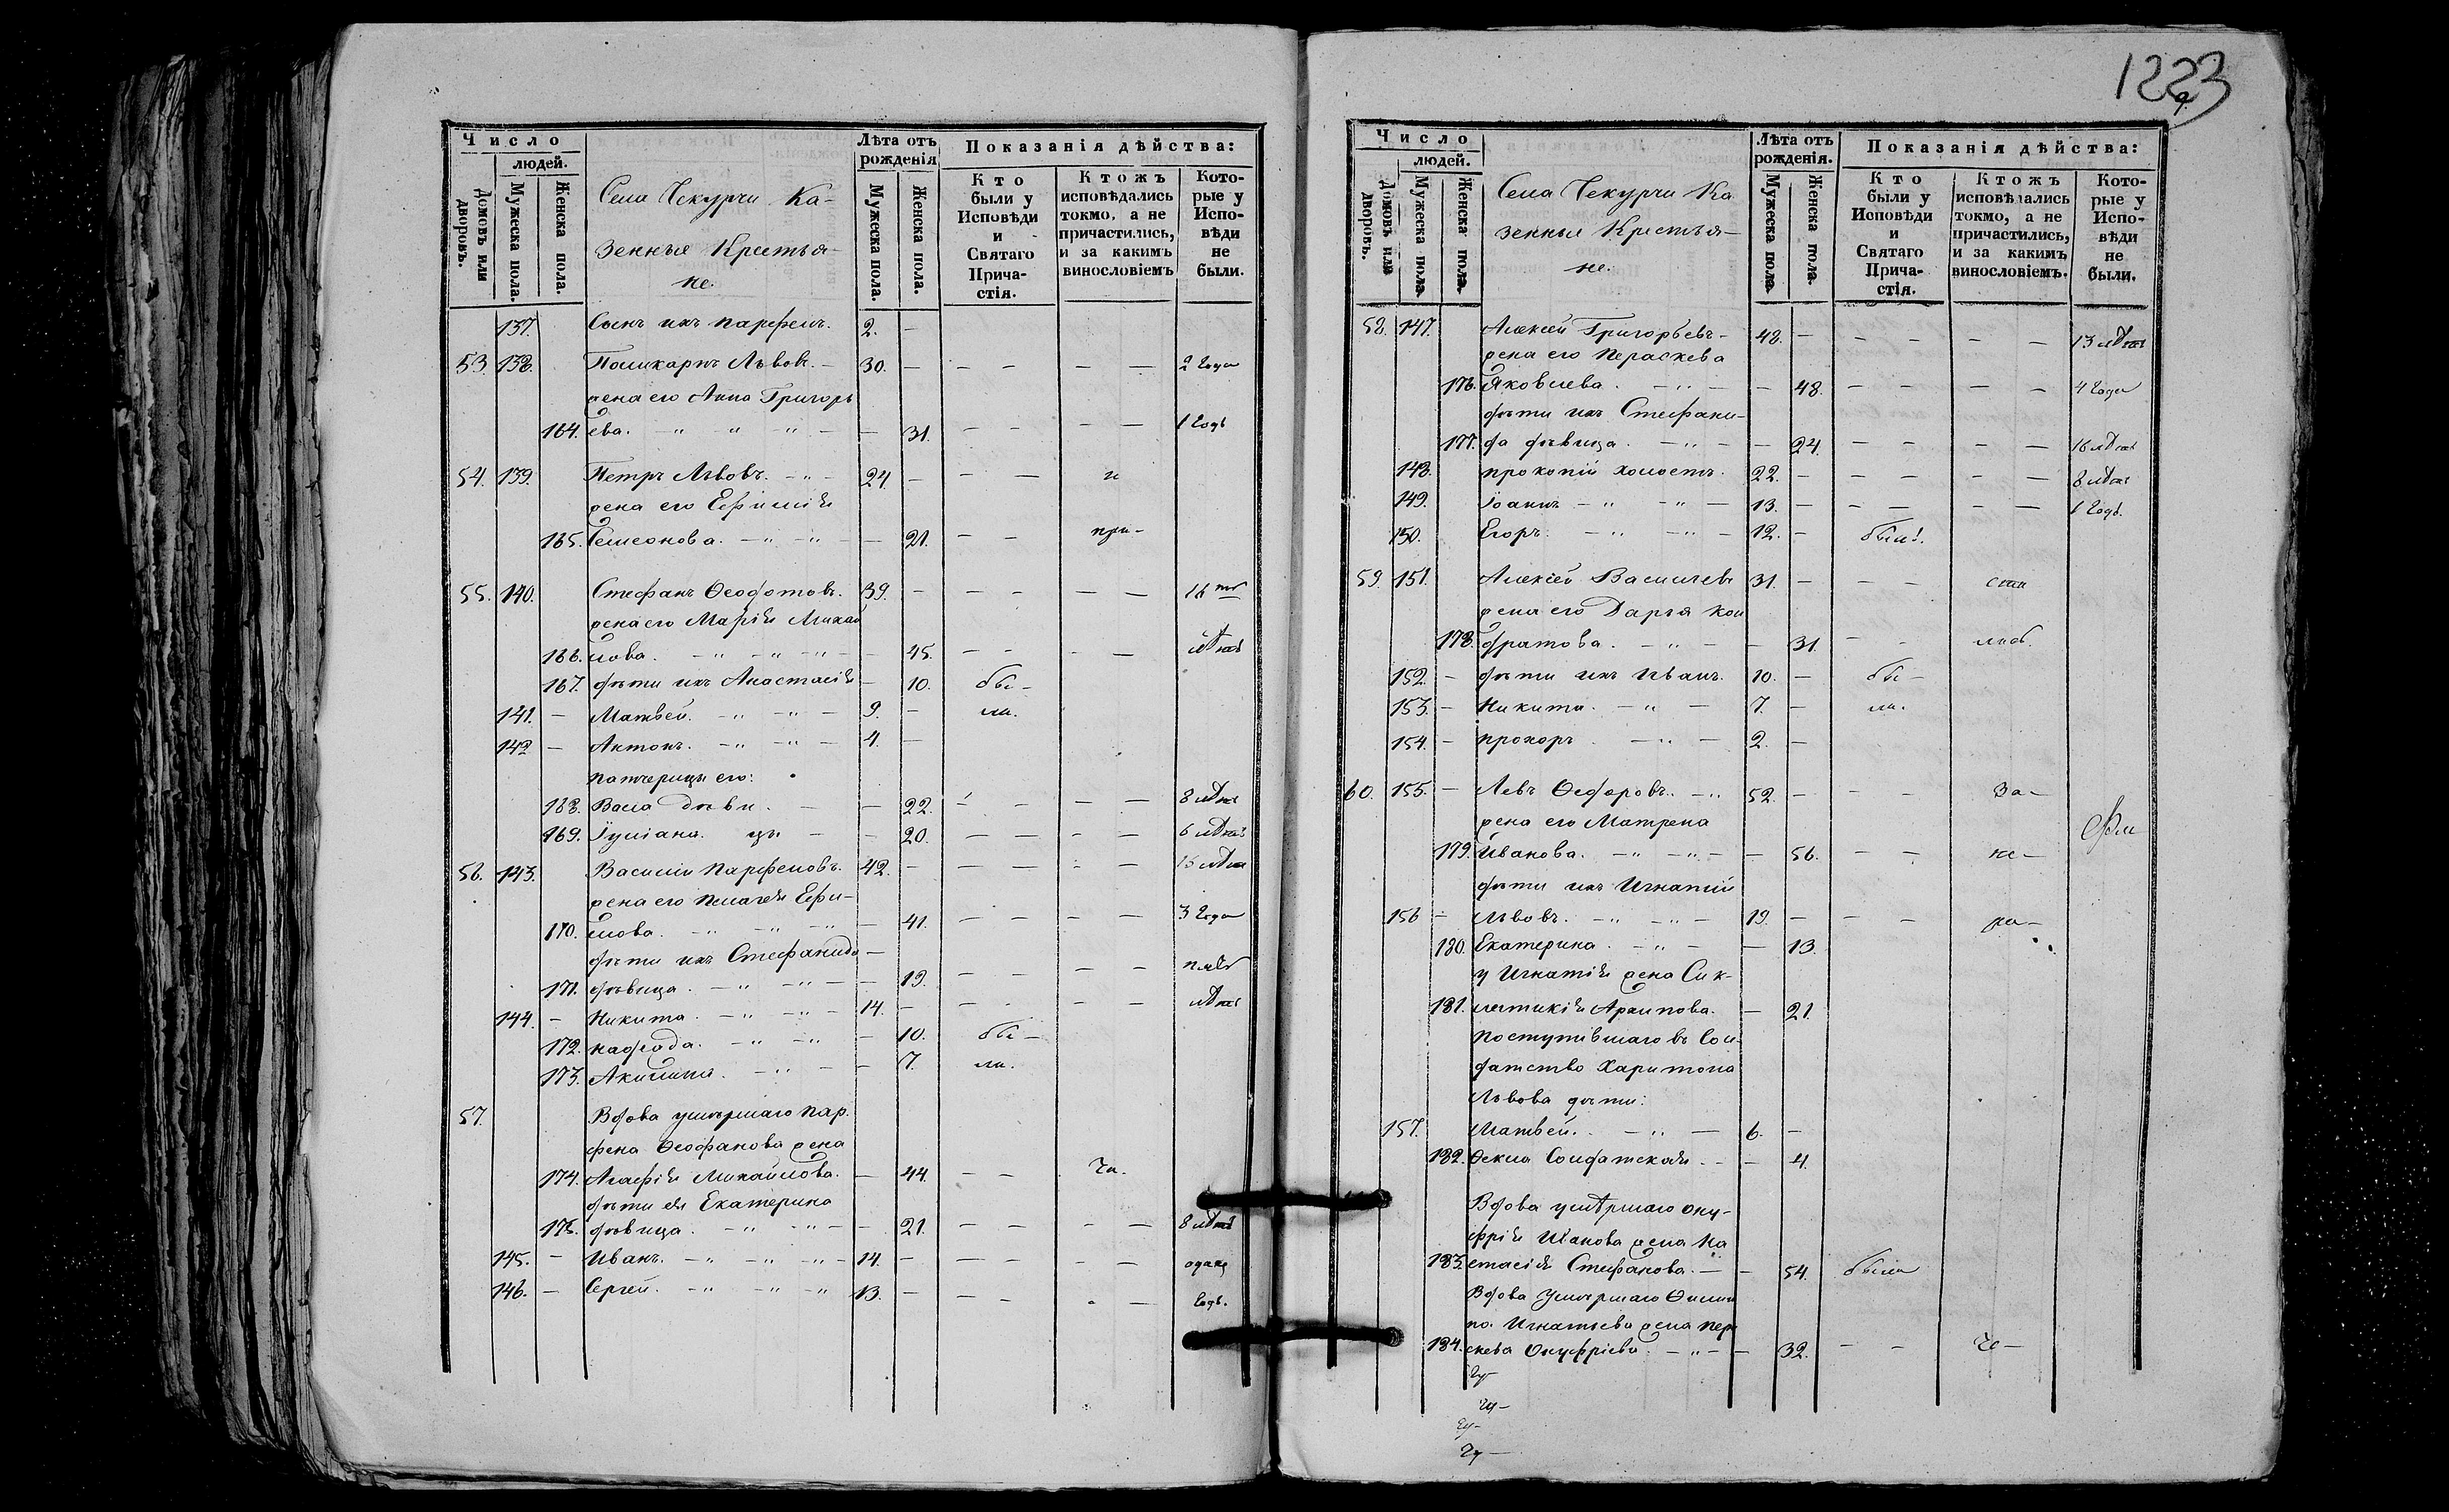 1223
Число
людей.
Домовъ или дворовъ.
Мужеска пола.
Женска пола.
Села Чекурчи Ка-
зенныя Крестья-
не.
Лѣта отъ рожденія
Мужеска пола.
Женска пола.
Показанія дѣйства:
Кто были у Исповѣди и Святаго Прича-стія.
Ктожъ исповѣдались токмо, а не причастились, и за какимъ винословіемъ
Кото-рые у Испо-вѣди не были.
137. Сынъ ихъ парфенъ. 2. —
53. 138. Поликарпъ Львовъ. — 30. — — — — — 2 года
жена его Анна Григорь
164. ева. — " " " — — 31. — — — — 1 годъ
54. 139. Петръ Львовъ. — " — 24. — — — и
жена его Ефимія
165. Семеонова. — " — " — — 21. — — при-
55. 140. Стефанъ Ѳеодотовъ. 39. — — — — —
жена его Марія Михай
166. лова. — " — " — " — — 45. — — — — лѣтъ
167. дѣти ихъ Анастасія — 10. бы-
141. — Матвей. — " — " — 9. — ли.
142 — Антонъ. — " — " — 4. —
патчерицы его:
168. Васса дѣви. — — 22. — — — — 8 лѣтъ
169. Іуліана. цы — — 20. — — — — 6 лѣтъ
56. 143. Василій Парфеновъ. 42. — — — — — 15 лѣтъ
жена его Пелагея Ефи-
170. мова. — " — " — " — — 41. — — — — 3 года
дѣти ихъ Стефанида —
171. дѣвица. — " — " — — 19. — — — — пять
144. — Никита. — " — " — 14. — — — — — лѣтъ
172. надежда. — " — " — 10. бы-
173. Акилина. — " — — 7. ли.
57. Вдова умѣршаго пар.
фена Ѳеофанова жена
174. Агафія Михайлова. — 44. — — Чи.
дѣти ея Екатерина
175. дѣвица. — " — " — — 21. — — — — 8 лѣтъ
145. — Иванъ. — " — " — " — 14. — — — — — одинъ
146. — Сергей. — " — " — " 13. — — — — — годъ.
Число
людей.
Домовъ или дворовъ.
Мужеска пола.
Женска пола.
Села Чекурчи Ка
зенныя Крестья-
не.
Лѣта отъ рожденія.
Мужеска пола.
Женска пола.
Показанія дѣйства:
Кто были у Исповѣди и Святаго Прича-стія.
Ктожъ исповѣдались токмо, а не причастились, и за какимъ винословіемъ.
Кото-рые у Испо-вѣди не были.
58. 147. Алексей Григорьевъ — 48. — — — — — 13 лѣтъ
жена его Пераскева
176. Яковлева. — " — — 48. — — — — 4 года
дѣти ихъ Стефани-
177. да дѣвица. — " — — 24. — — — — 16 лѣтъ
148. прокопій холостъ. 22. — — — — — 8 лѣтъ
149. Іоаннъ — " — " — 13. — — — — — 1 годъ.
150. Егоръ. — " — " — 12. — былъ.
59. 151. Алексей Васильевъ 31. — — —
жена его Дарья кон
178. дратова. — " — — 31. —
152. — дѣти ихъ Иванъ. 10. — бы-
153. — Никита. — " — 7. — ли.
154. — прохоръ. — " — 2. —
60. 155. — Левъ Ѳедоровъ. — " 52. — — — За-
жена его Матрена
179. Иванова. — " — " — — 56. — — не-
дѣти ихъ Игнатій
156 — Львовъ. — " — " — 19. — — — ра-
180. Екатерина. — " — — 13.
у Игнатія жена Син-
181. клитикія Архипова. — 21.
поступившаго въ Сол-
датство Харитона
Львова дѣти:
157. Матвей. — " — 6. —
182. Ѳекла Солдатская. — — 4.
Вдова умѣршаго ону-
фрія Иванова жена На
183. стасія Стефанова. — — 54. была
Вдова умѣршаго Филип
по. Игнатьева жена пера
184. скева Онуфріева. — " — — 32. — — Че-
Чу-
Чу-
Чу-
Чу-